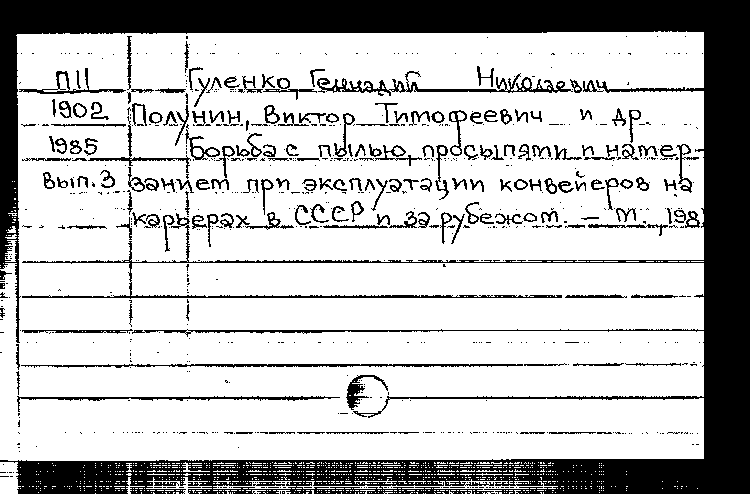 П11 Гуленко, Геннадий Николаевич
1902 Полунин, Виктор Тимофеевич и др.
1985 Борьба с пылью, просыпями и намер-
вып.3 занием при эксплуатации конвейеров на
карьерах в СССР и за рубежом. – М., 198